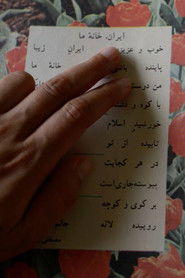 ایران، خانهٔ ما
خوب و عزیز ایران زیبا
پاینده باشی خانهٔ ما
من دوست
با کوه و دشت
خورشید اسلام
تابیده از تو
در هر کجایت
پیوسته جاری است
بر کوی و کوچه
روییده لاله جانم
مصطفی